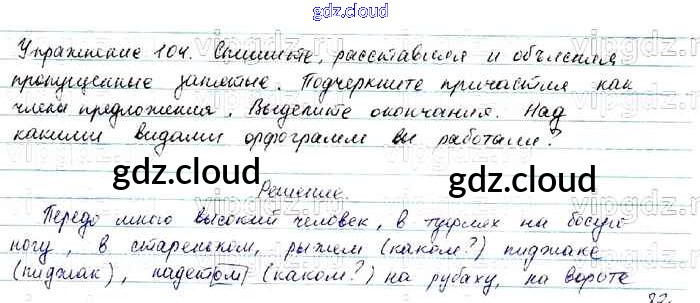 gdz.cloud
Упражнение 104. Спишите, расставляя и объясняя
пропущенные запятые. Подчеркните причастия как
члены предложения. Выделите окончания. Над
какими видами орфограмм вы работали?
gdz.cloud gdz.cloud
Решение
Передо мною высокий человек, в туфлях на босую
ногу, в стареньком, рыжем (каком?) пиджаке
(пиджак), надетом (каком?) на рубаху, на вороте